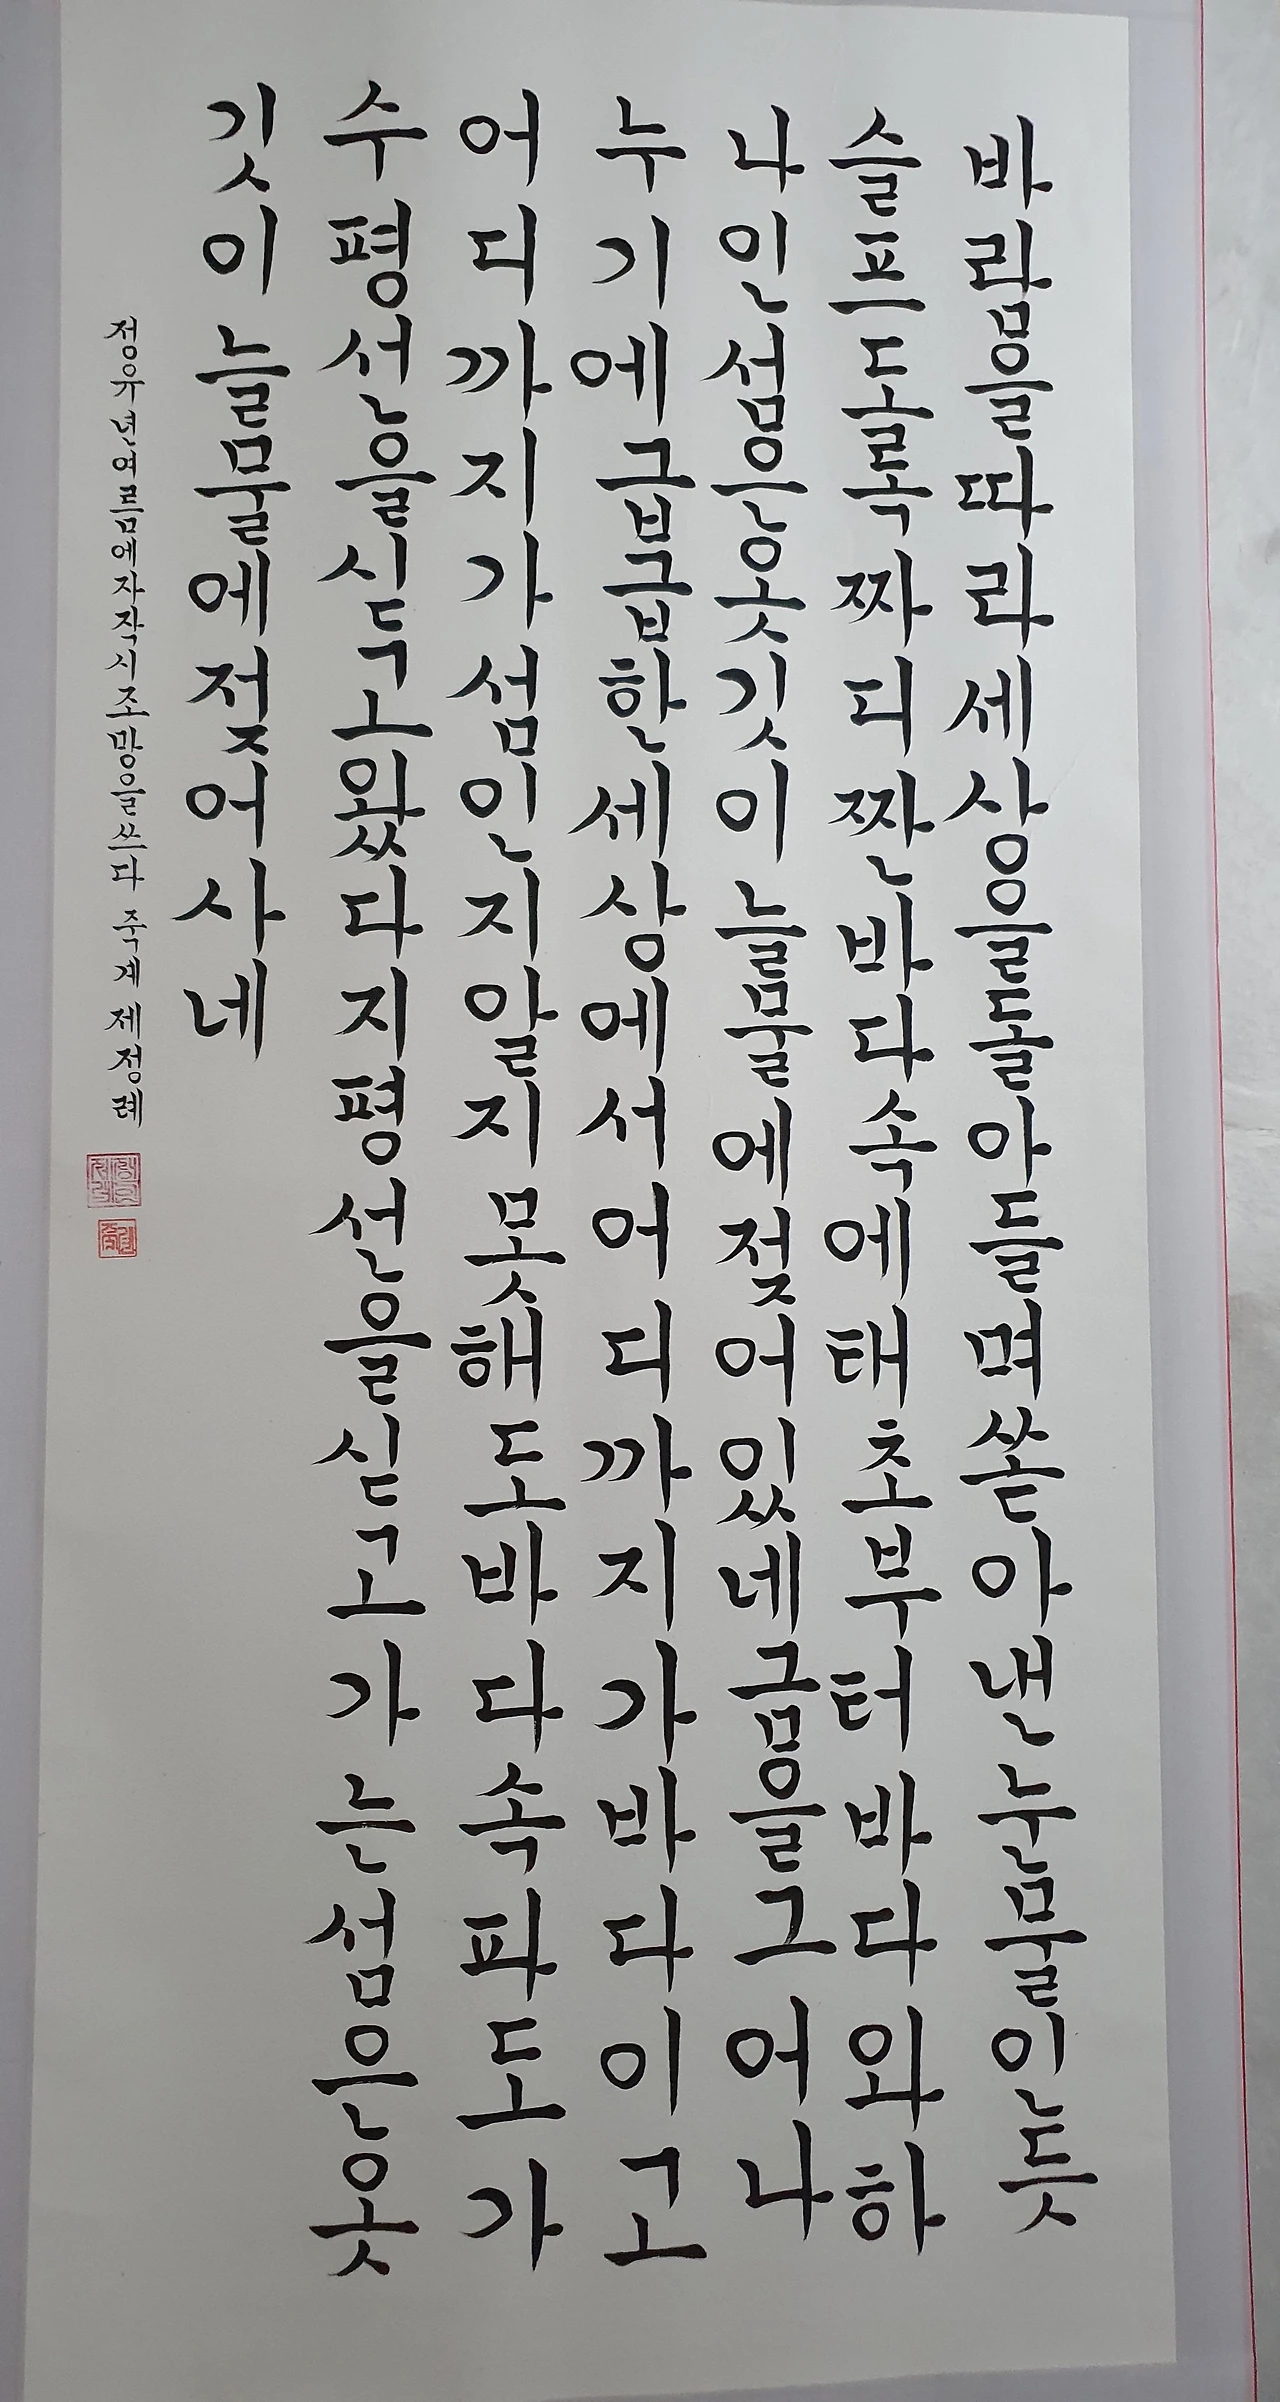 바람을따라세상을돌아들며쏟아낸눈물인듯
슬프도록짜디짠바다속에태초부터바다와하
나인섬은옷깃이늘물에젖어있네금을그어나
누기에급급한세상에서어디까지가바다이고
어디까지가섬인지알지못해도바다속파도가
수평선을싣고왔다지평선을싣고가는섬은옷
깃이늘물에젖어사네
정유년여름에자작시조망을쓰다 죽계 제정례